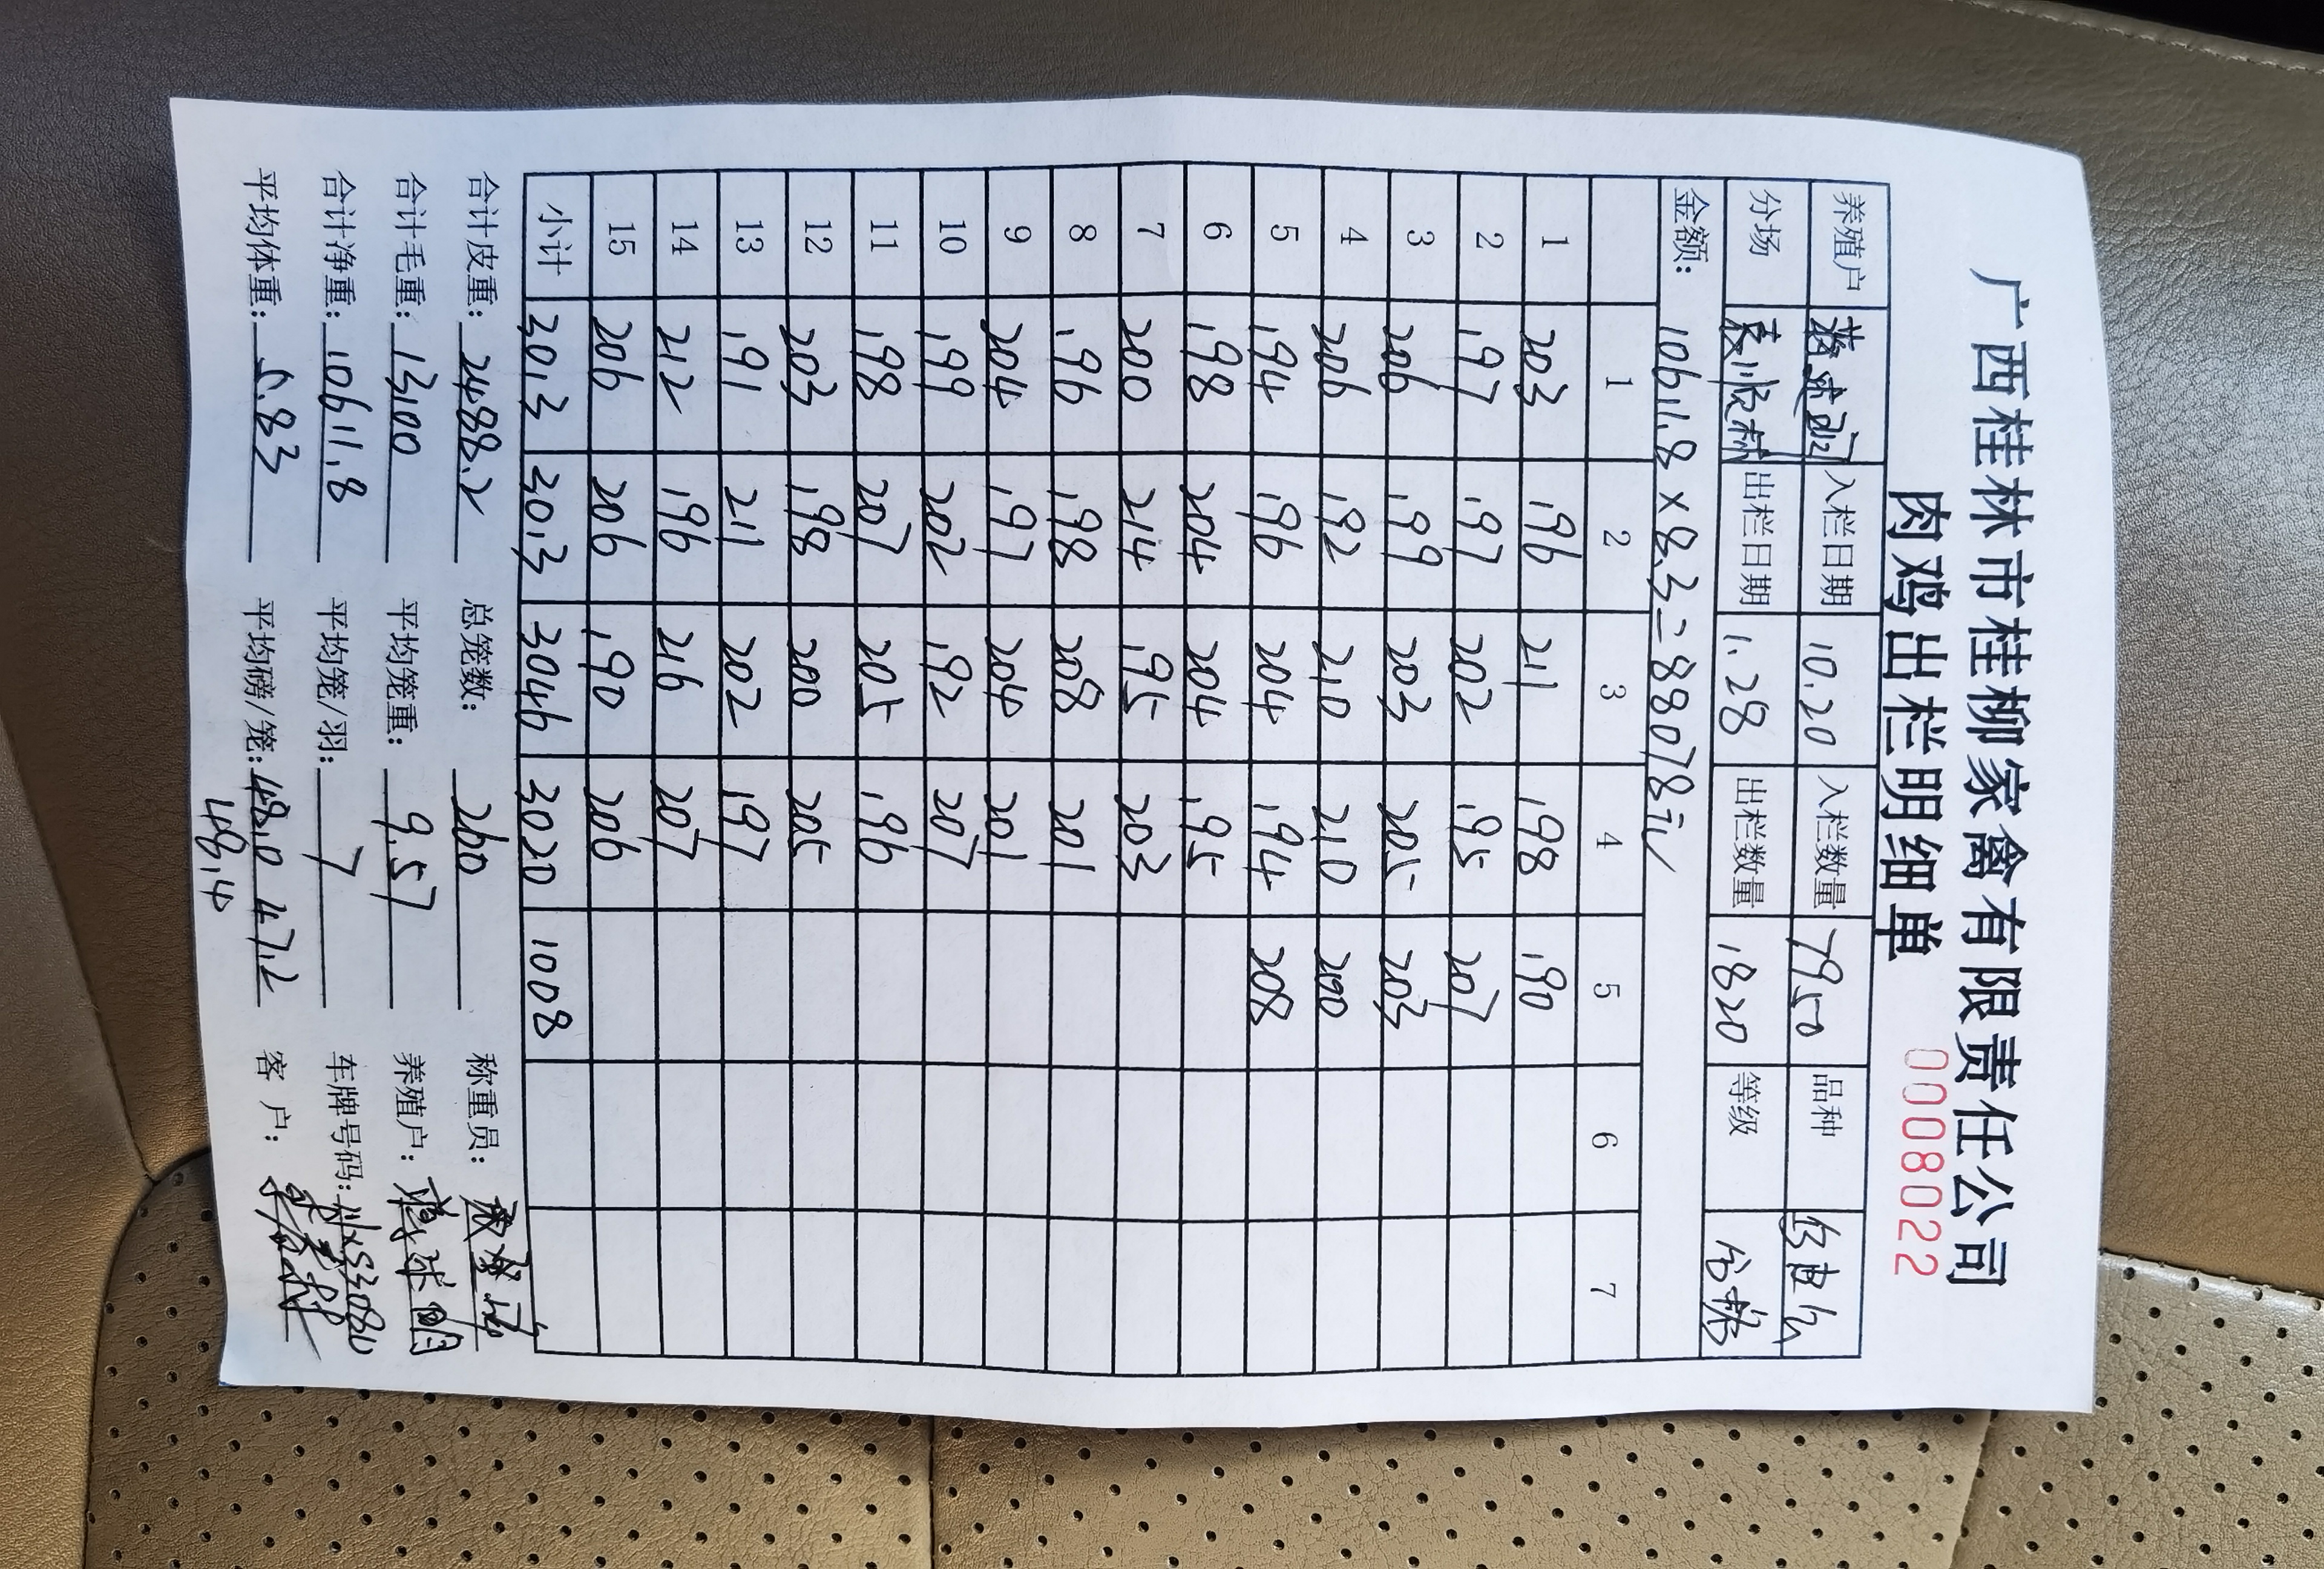 广西桂林市桂柳家禽有限责任公司
肉鸡出栏明细单 0008022
养殖户 入栏日期 10.20 入栏数量 7950 品种
分场 出栏日期 1.28 出栏数量 1820 等级
金额: 10611.8×8.3=88078元
1 2 3 4 5 6 7
1 203 196 211 198 190
2 197 197 202 195 207
3 206 199 203 205 203
4 206 192 210 210 200
5 194 196 204 194 208
6 198 204 204 195
7 200 214 195 203
8 196 198 208 201
9 204 197 204 201
10 199 202 192 207
11 198 207 205 196
12 203 198 200 205
13 191 211 202 197
14 212 196 216 207
15 206 206 190 206
小计 3013 3013 3046 3020 1008
合计皮重: 2488.2 总笼数: 260 称重员:
合计毛重: 13100 平均笼重: 9.57 养殖户:
合计净重: 10611.8 平均笼/羽: 7 车牌号码:
平均体重: 5.83 平均磅/笼: 48.0 47.2 客户:
48.4